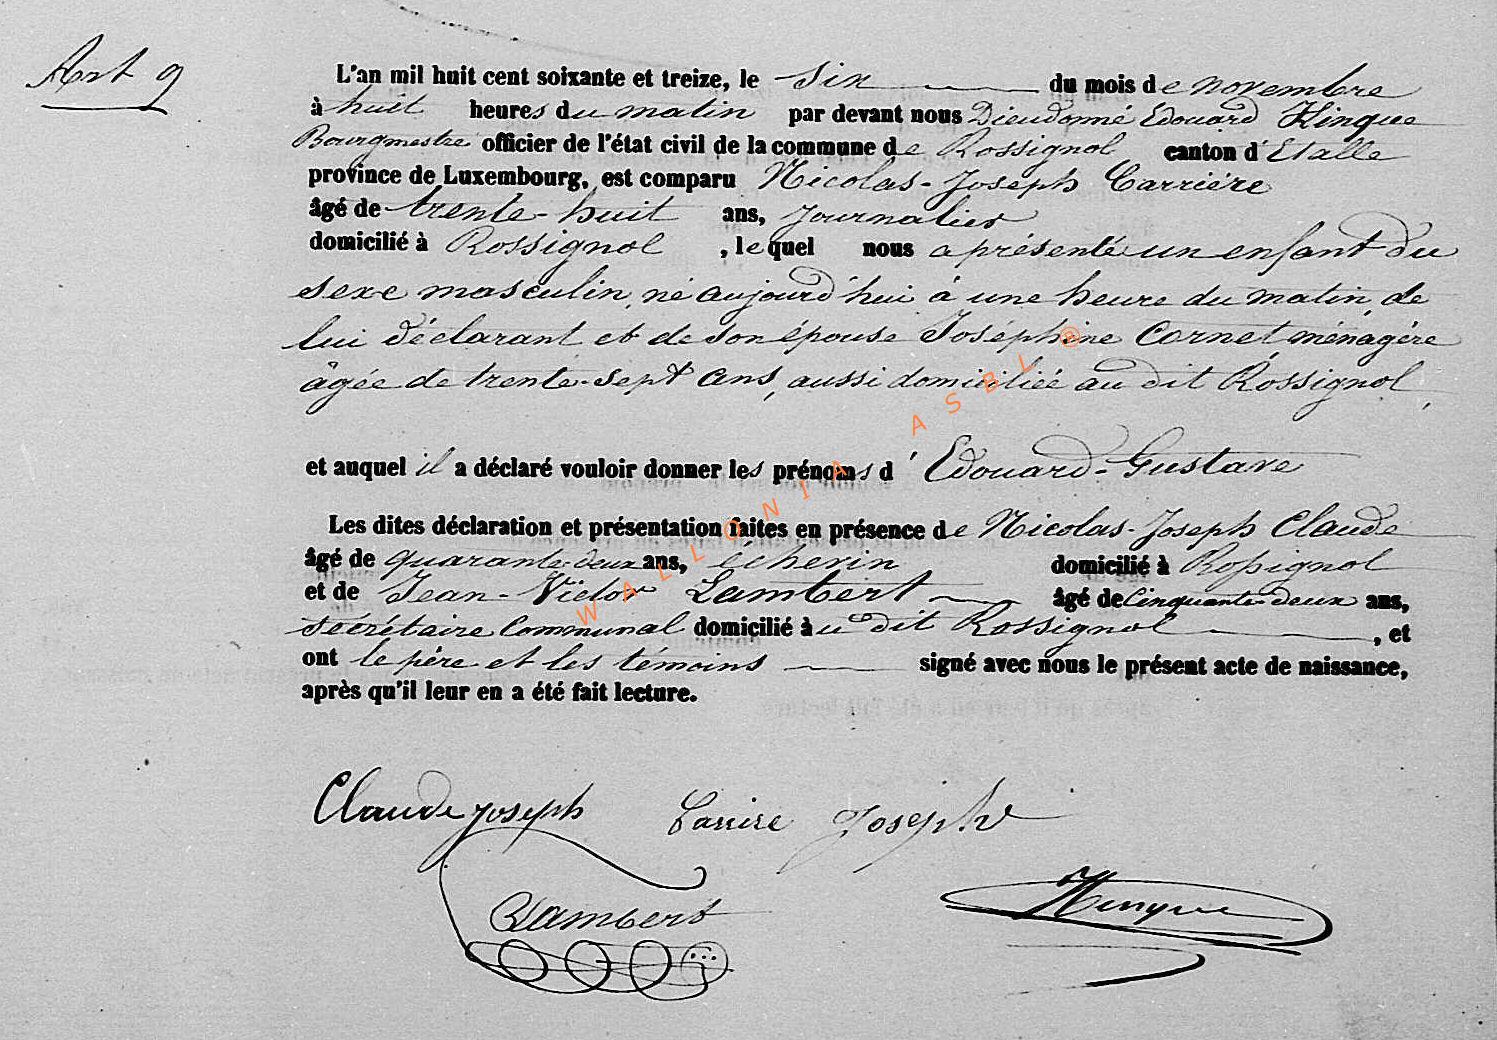 Art 9
L'an mil huit cent soixante et treize, le six du mois de novembre
à huit heures du matin par devant nous Dieudonné Edouard Hinque
Bourgmestre officier de l'état civil de la commune de Rossignol canton d'Etalle
province de Luxembourg, est comparu Nicolas-Joseph Carrière
âgé de trente-huit ans, Journalier
domicilié à Rossignol, lequel nous a présenté un enfant du
sexe masculin, né aujourd'hui à une heure du matin, de
lui déclarant et de son épouse Joséphine Cornet, ménagère
âgée de trente-sept ans, aussi domiciliée au dit Rossignol,
et auquel il a déclaré vouloir donner les prénoms d'Edouard-Gustave
Les dites déclaration et présentation faites en présence de Nicolas-Joseph Claude
âgé de quarante-deux ans, échevin domicilié à Rossignol
et de Jean-Victor Lambert âgé de cinquante-deux ans,
secrétaire communal domicilié au dit Rossignol, et
ont le père et les témoins signé avec nous le présent acte de naissance,
après qu'il leur en a été fait lecture.
Claude Joseph Carrire Joseph
Lambert Hinque
WALLONIA ASBL ®